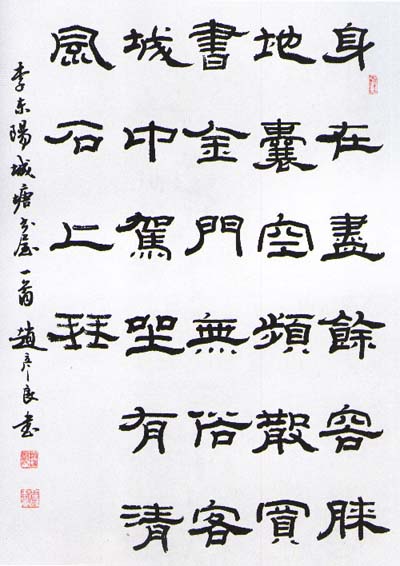 身在盡餘容膝
地囊空頻散買
書金門無俗客
城中駕坐有清
風石上琴
李东陽城塘书屋一首 趙彥良书